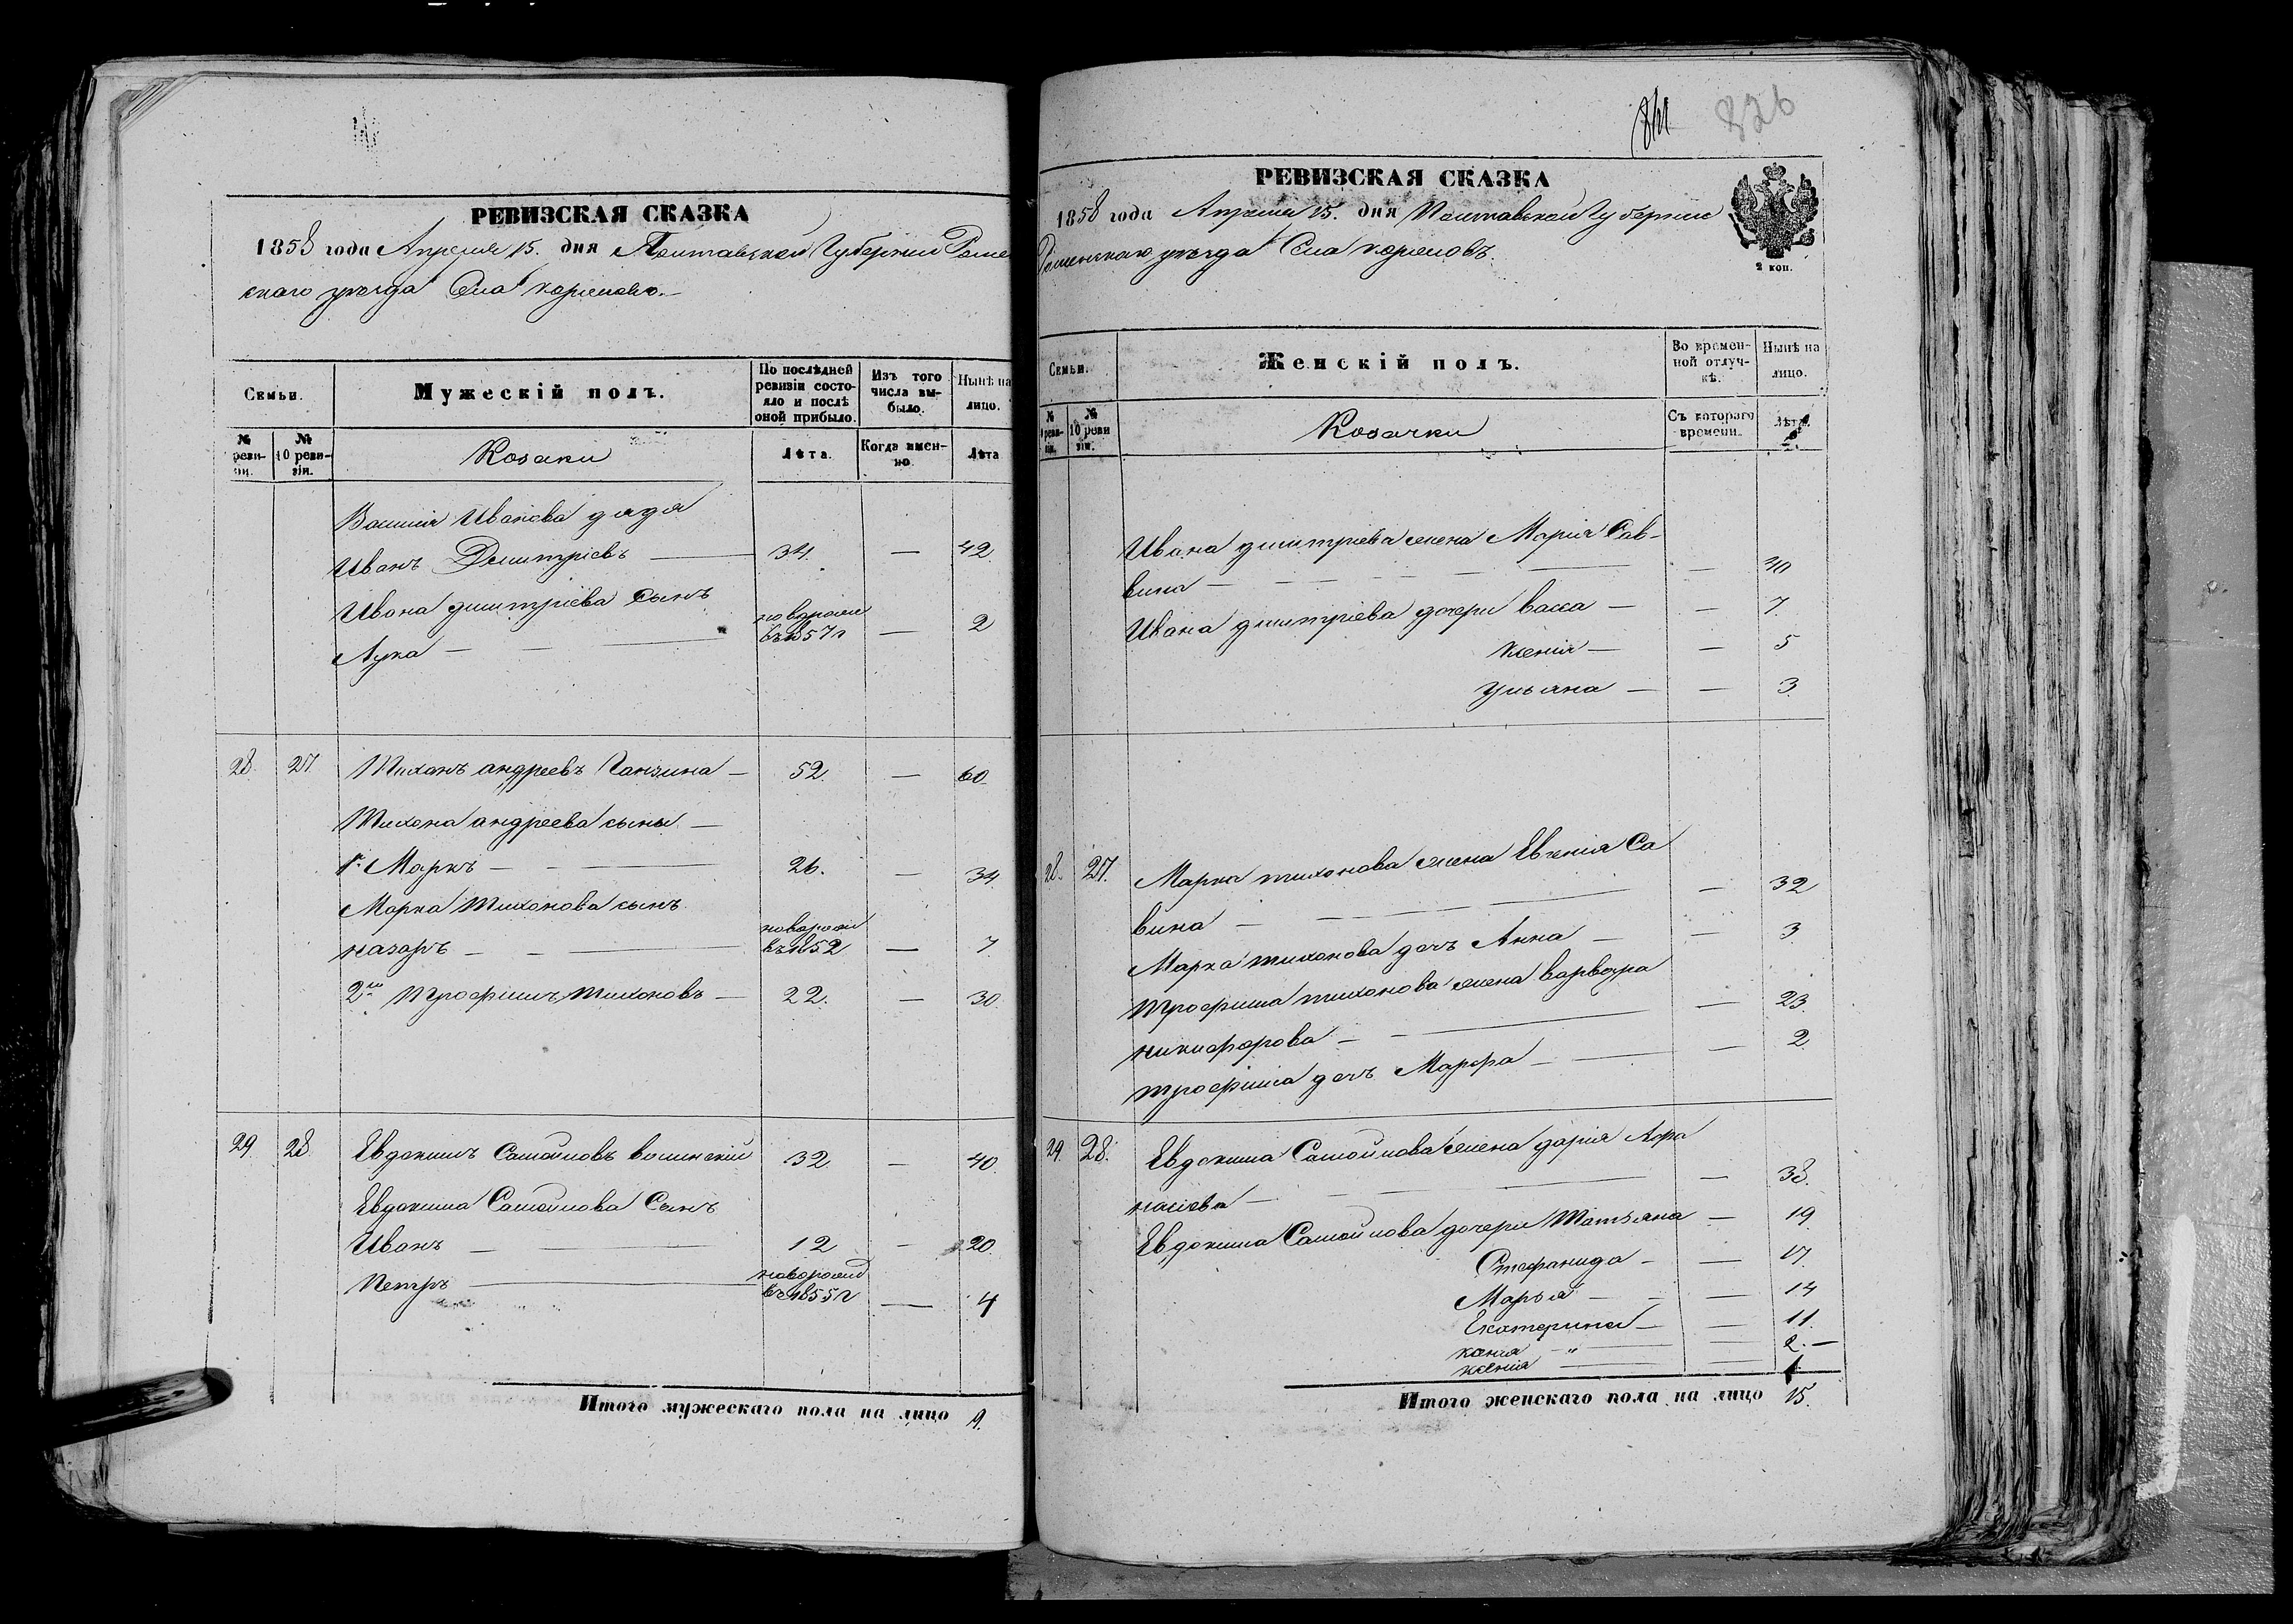 РЕВИЗСКАЯ СКАЗКА
1858 года Апреля 15. дня Полтавской Губернии Роме
скаго уезда Села
Семьи.
Мужескій полъ.
По послѣдней ревизіи состояло и послѣ оной прибыло.
Изъ того числа выбыло.
Нынѣ на лицо.
№ реви-
зіи.
№ 10 реви-
зіи.
Козаки
Лѣта.
Когда имен-
но.
Лѣта
Василія Иванова дядя
Иванъ Дмитріевъ — 34. — 42
Ивана дмитріева Сынъ
Лука — — — новорожд въ 1857 г — 2
28. 27 Тихонъ андреевъ Ганзина — 52. — 60
Тихона андреева сыны —
1й Маркъ — — 26. — 34
Марка Тихонова сынъ
назаръ — — — новорожд въ 1852 — 7
2й Трофимъ Тихоновъ — 22. — 30
29. 28 Евдокимъ Самойловъ волинскій 32 — 40.
Евдокима Самойлова Сынъ
Иванъ — — 12 — 20
Петръ — новорожд въ 1855 г — 4
Итого мужескаго пола на лицо 9.
826
РЕВИЗСКАЯ СКАЗКА
1858 года Апреля 15. дня Полтавской Губернии
Роменскаго уезда Села
2 коп.
Семьи.
Женскій полъ.
Во времен-
ной отлуч-
кѣ.
Нынѣ на
лицо.
№ реви-
зіи.
№ 10 реви
зіи.
Козачки
Съ котораго
времени.
Лѣта.
Ивана дмитріева жена Марія Сав-
вина — — — — 40
Ивана дмитріева дочери васса — — 7
Ксенія — — 5
Ульяна — — 3
28. 27. Марка тихонова жена Евгенія Са
вина — — — 32
Марка тихонова дочь Анна — — 3
Трофима тихонова жена варвара
никифорова — — — 23
трофима дочь Марфа — — — 2
29. 28. Евдокима Самойлова жена дарія Афа
насіева — — — 38.
Евдокима Самойлова дочери Татьяна — 19
Стефанида — — 17
Марья — — — 14
Екатерина — — 11.
ксенія — „ — — 2. —
ксенія — —
Итого женскаго пола на лицо 15.